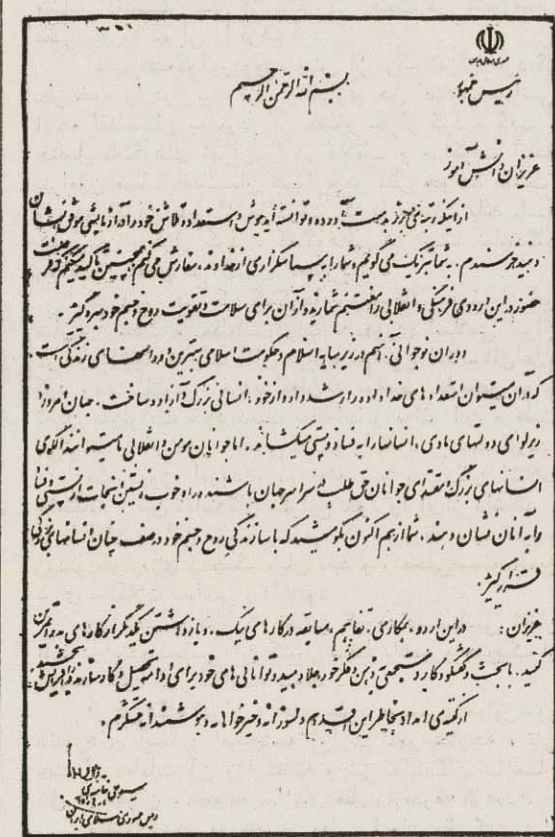 جمهوری اسلامی ایران
رئیس جمهور
بسم الله الرحمن الرحیم
عزیزان دانش آموز
از اینکه رتبه‌ی برتر بدست آورده و توانسته‌اید هوش و استعداد و تلاش خود را در آزمایشی موفق نشان
دهید خرسندم. به شما تبریک می گویم و شما را به سپاسگزاری از خداوند، سفارش می کنم. همچنین تأکید میکنم که فرصت
حضور در این اردوی فرهنگی و انقلابی را مغتنم شمارید و از آن برای سلامت و تقویت روح و جسم خود بهره گیرید.
دوران نوجوانی، آنهم در زیر سایه اسلام و حکومت اسلامی بهترین دورانهای زندگی است
که در آن میتوان استعدادهای خداداد را رشد داد و از خود، انسانی بزرگ و آزاده ساخت. جهان امروز از
زیر لوای دولتهای مادی، انسانها را به فساد و پستی میکشاند. اما جوانان مومن و انقلابی ما میتوانند الگوی
انسانهای بزرگ و مقتدای جوانان حق طلب در سراسر جهان باشند و راه خوب زیستن و نجات از پستی و فساد
را به آنان نشان دهند. شما از هم اکنون بکوشید که با سازندگی روح و جسم خود در صف چنان انسانهای بزرگی
قرار گیرید.
عزیزان: در این اردو، همکاری، تفاهم، مسابقه در کارهای نیک، و بازداشتن یکدیگر از کارهای بد را تمرین
کنید. با بحث و گفتگو و کار دستجمعی ذهن و فکر خود را جلا دهید و توانائی های خود را برای ادامه تحصیل و کار سازنده افزایش بخشید.
از کمیته‌ی امداد بخاطر این اقدام دلسوزانه و خیرخواهانه و هوشمندانه متشکرم.
سید علی خامنه‌ای
رئیس جمهوری اسلامی ایران